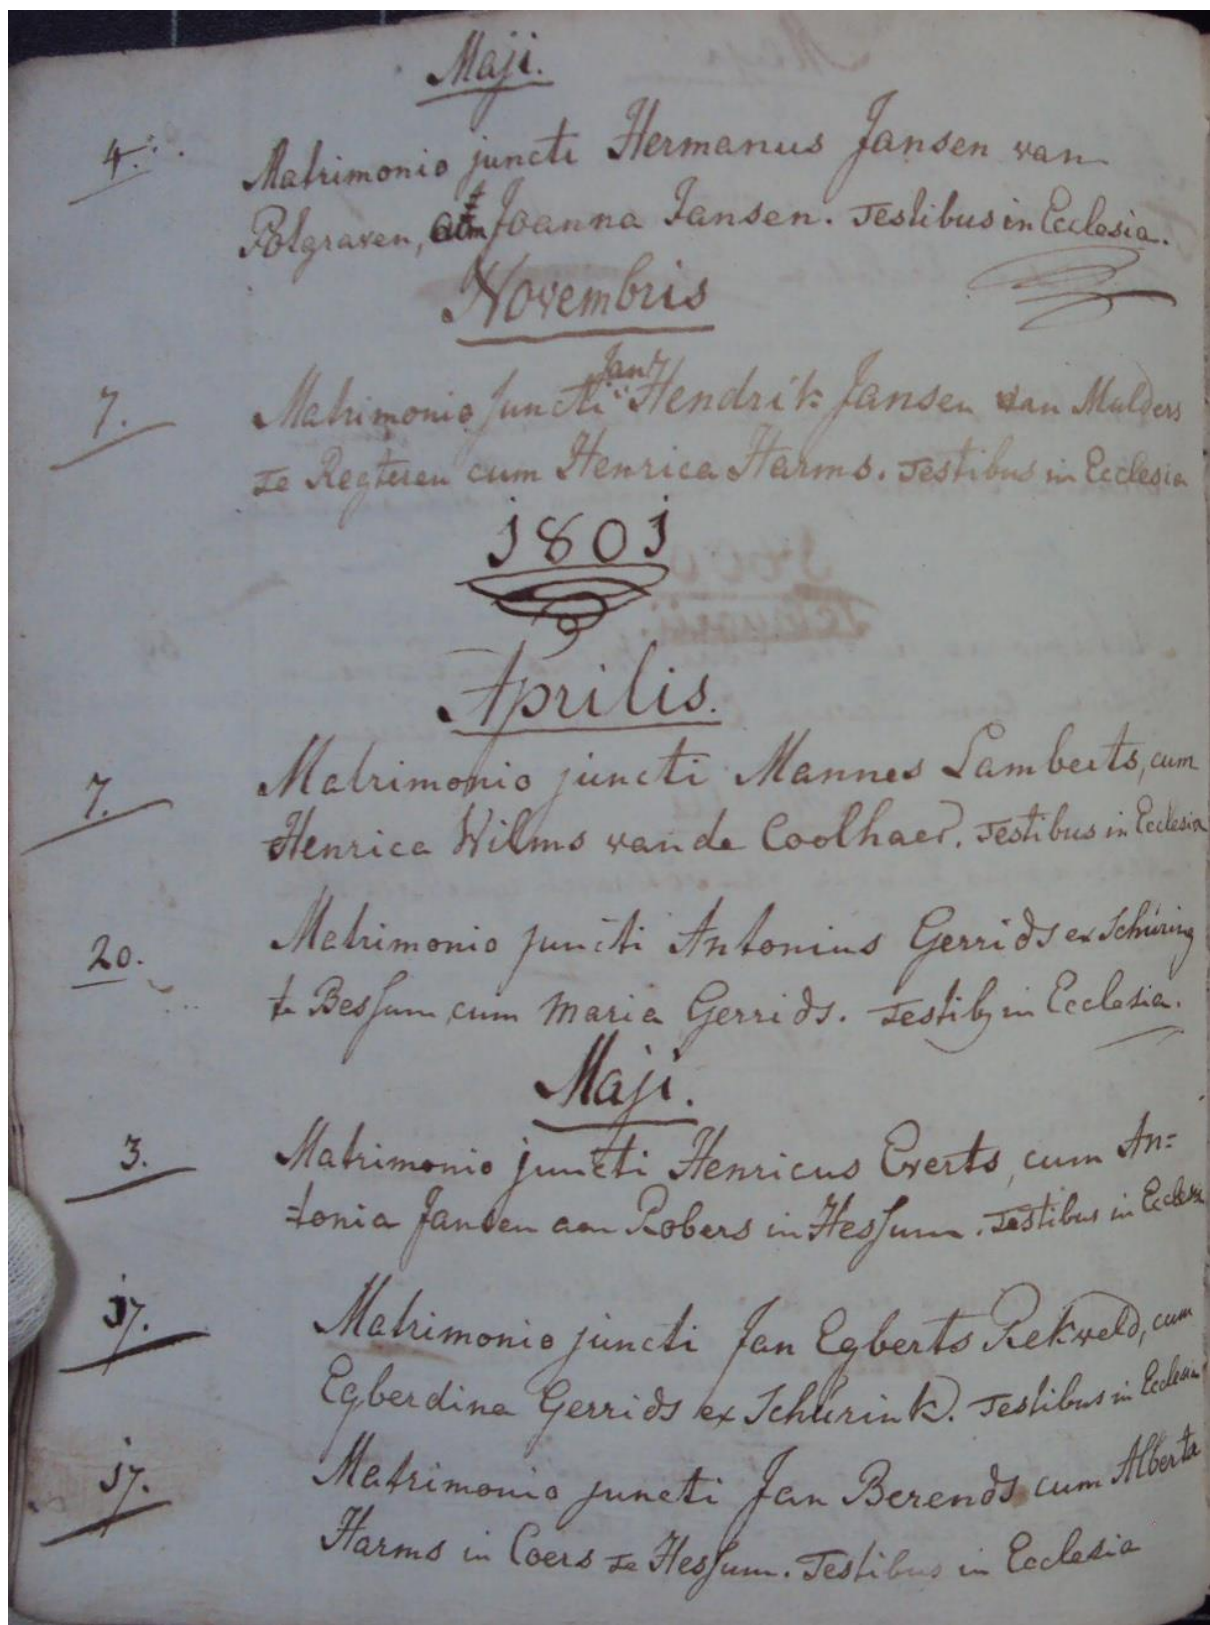 Maji.
4. Matrimonio juncti Hermanus Jansen van
Polgraven, et Joanna Jansen. Testibus in Ecclesia.
Novembris
7. Matrimonio Juncti Jan Hendrik Jansen van Mulders
te Regteren cum Henrica Harms. Testibus in Ecclesia
1801
Aprilis.
7. Matrimonio juncti Mannes Lamberts, cum
Henrica Wilms van de Coolhaer. Testibus in Ecclesia
20. Matrimonio juncti Antonius Gerrids ex Schüring
te Bessum cum Maria Gerrids. Testib, in Ecclesia.
Maji.
3. Matrimonio juncti Henricus Everts, cum An=
tonia Jansen aan Robers in Hessum. Testibus in Ecclesia
17. Matrimonio juncti Jan Egberts Rekveld, cum
Egberdina Gerrids ex Schürink. Testibus in Ecclesia
17. Matrimonio juncti Jan Berends cum Alberta
Harms in Coers te Hessum. Testibus in Ecclesia